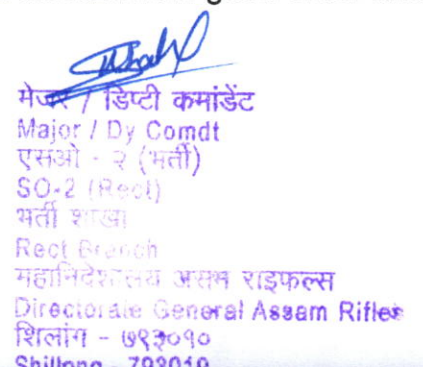 मेजर / डिप्टी कमांडेंट
Major / Dy Comdt
एसओ - २ (भर्ती)
SO-2 (Rect)
भर्ती शाखा
Rect Branch
महानिदेशालय असम राइफल्स
Directorate General Assam Rifles
शिलांग - ७९३०१०
Shillong - 793010